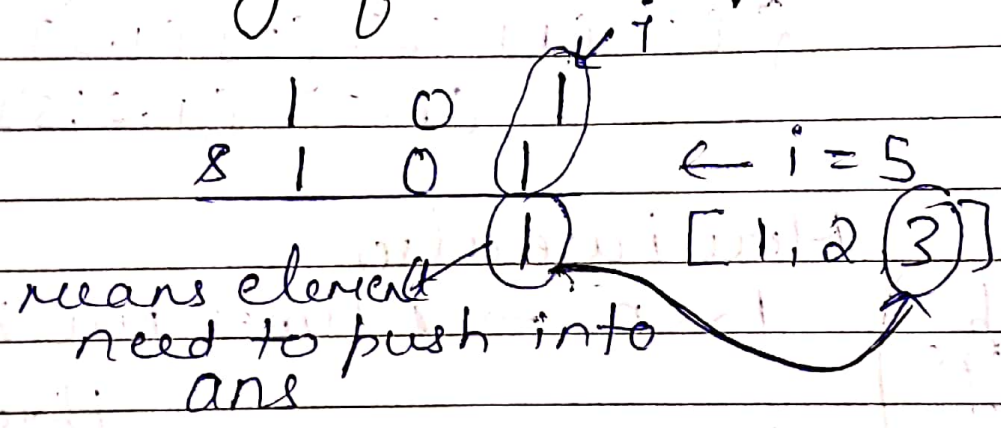 j
1 0 1
& 1 0 1 ← i = 5
1 [1, 2 3]
means element
need to push into
ans